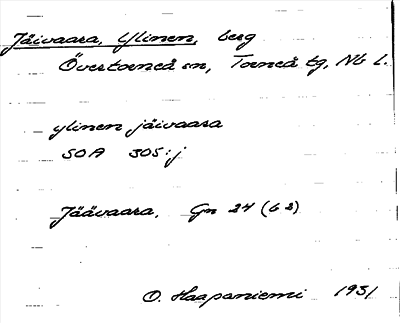 Jäivaara, Ylinen, berg
Övertorneå sn, Torneå tg, Nb l.
ylinen jäivaara
SOA 305:j
Jäävaara, Gn 24 (b2)
O. Haapaniemi 1931